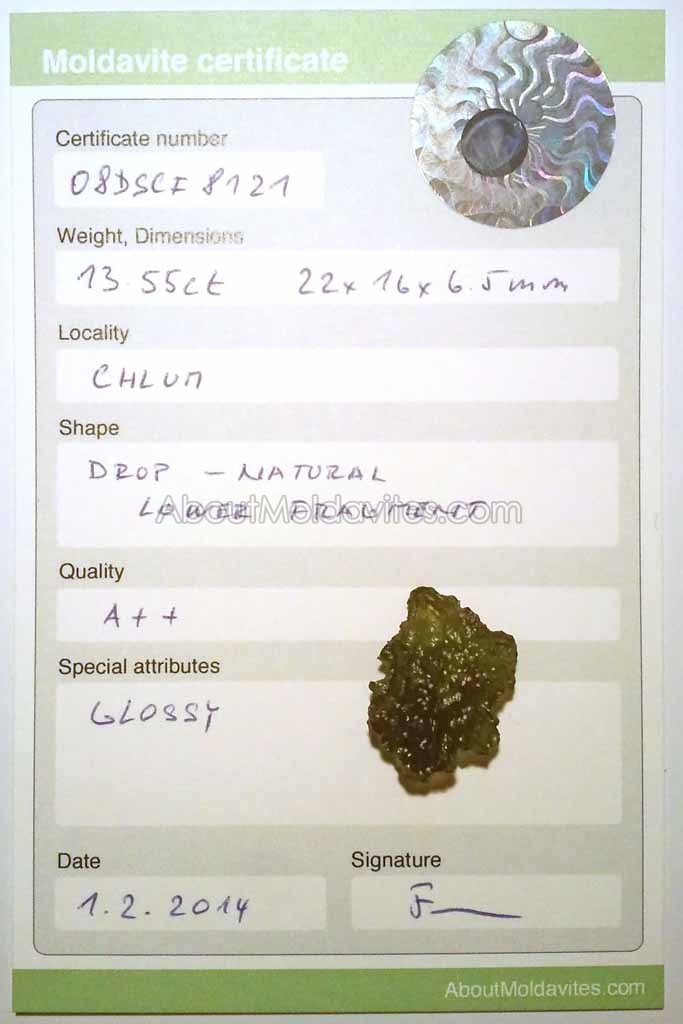 Moldavite certificate
Certificate number
08DSCF8121
Weight, Dimensions
13.55ct 22x16x6.5mm
Locality
CHLUM
Shape
DROP - NATURAL
LOWER FRAGMENT
AboutMoldavites.com
Quality
A++
Special attributes
GLOSSY
Date
Signature
1.2.2014
AboutMoldavites.com